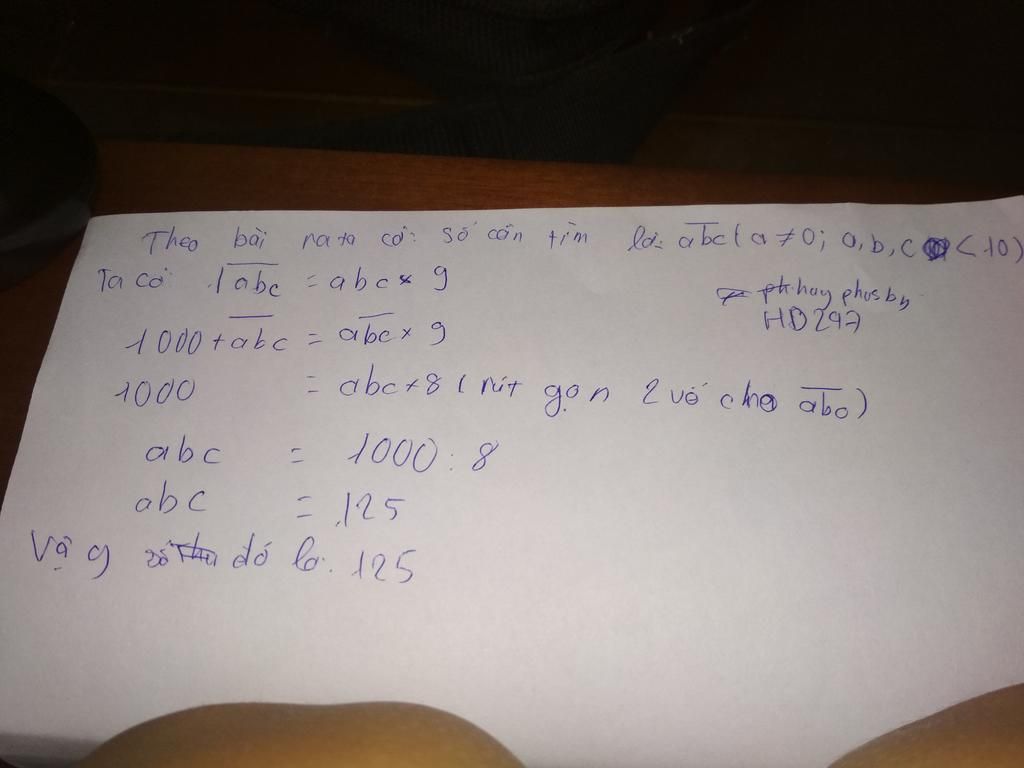 Theo bài ra ta có: số cần tìm là: a̅b̅c̅ ( a ≠ 0; a, b, c < 10)
Ta có 1a̅b̅c̅ = abc × 9
1000 + a̅b̅c̅ = a̅b̅c̅ × 9
1000 = abc × 8 ( rút gọn 2 vế cho a̅b̅c̅ )
abc = 1000 : 8
abc = 125
Vậy số đó là: 125
HD 297